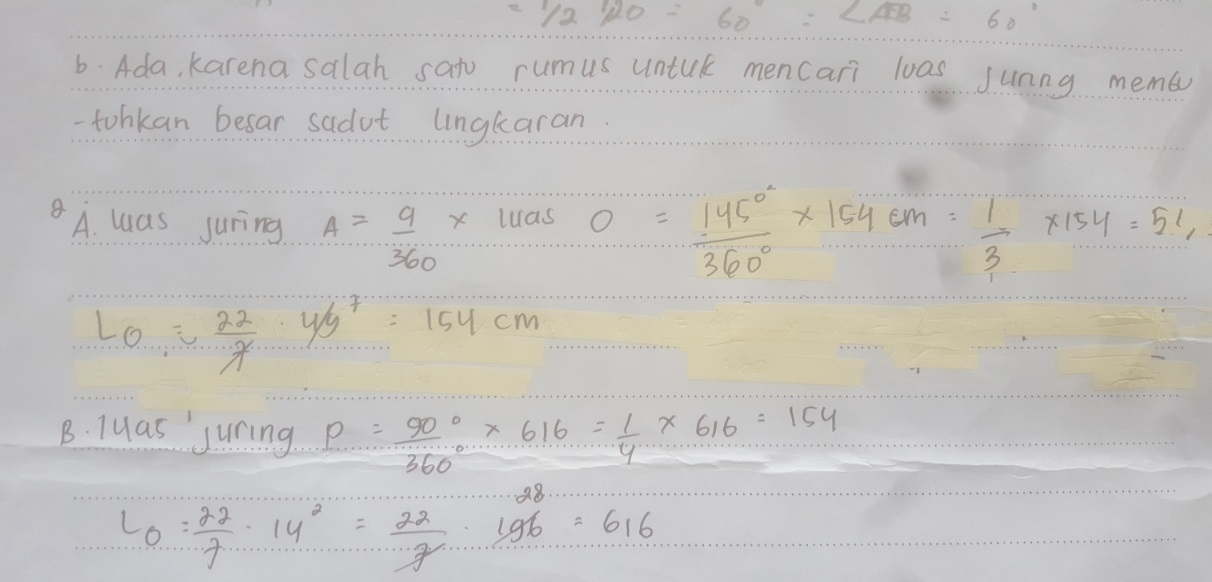 = 1/2 120 = 60° = ∠AEB = 60°
b. Ada, karena salah satu rumus untuk mencari luas juring membu
-tuhkan besar sudut lingkaran.
2 A. luas juring A = a/360 × luas O = 145°/360° × 154 cm = 1/3 × 154 = 51,
LO = 22/7 . 49 7 = 154 cm
B. luas juring P = 90°/360° × 616 = 1/4 × 616 = 154
LO = 22/7 . 14² = 22/7 . 196 28 = 616